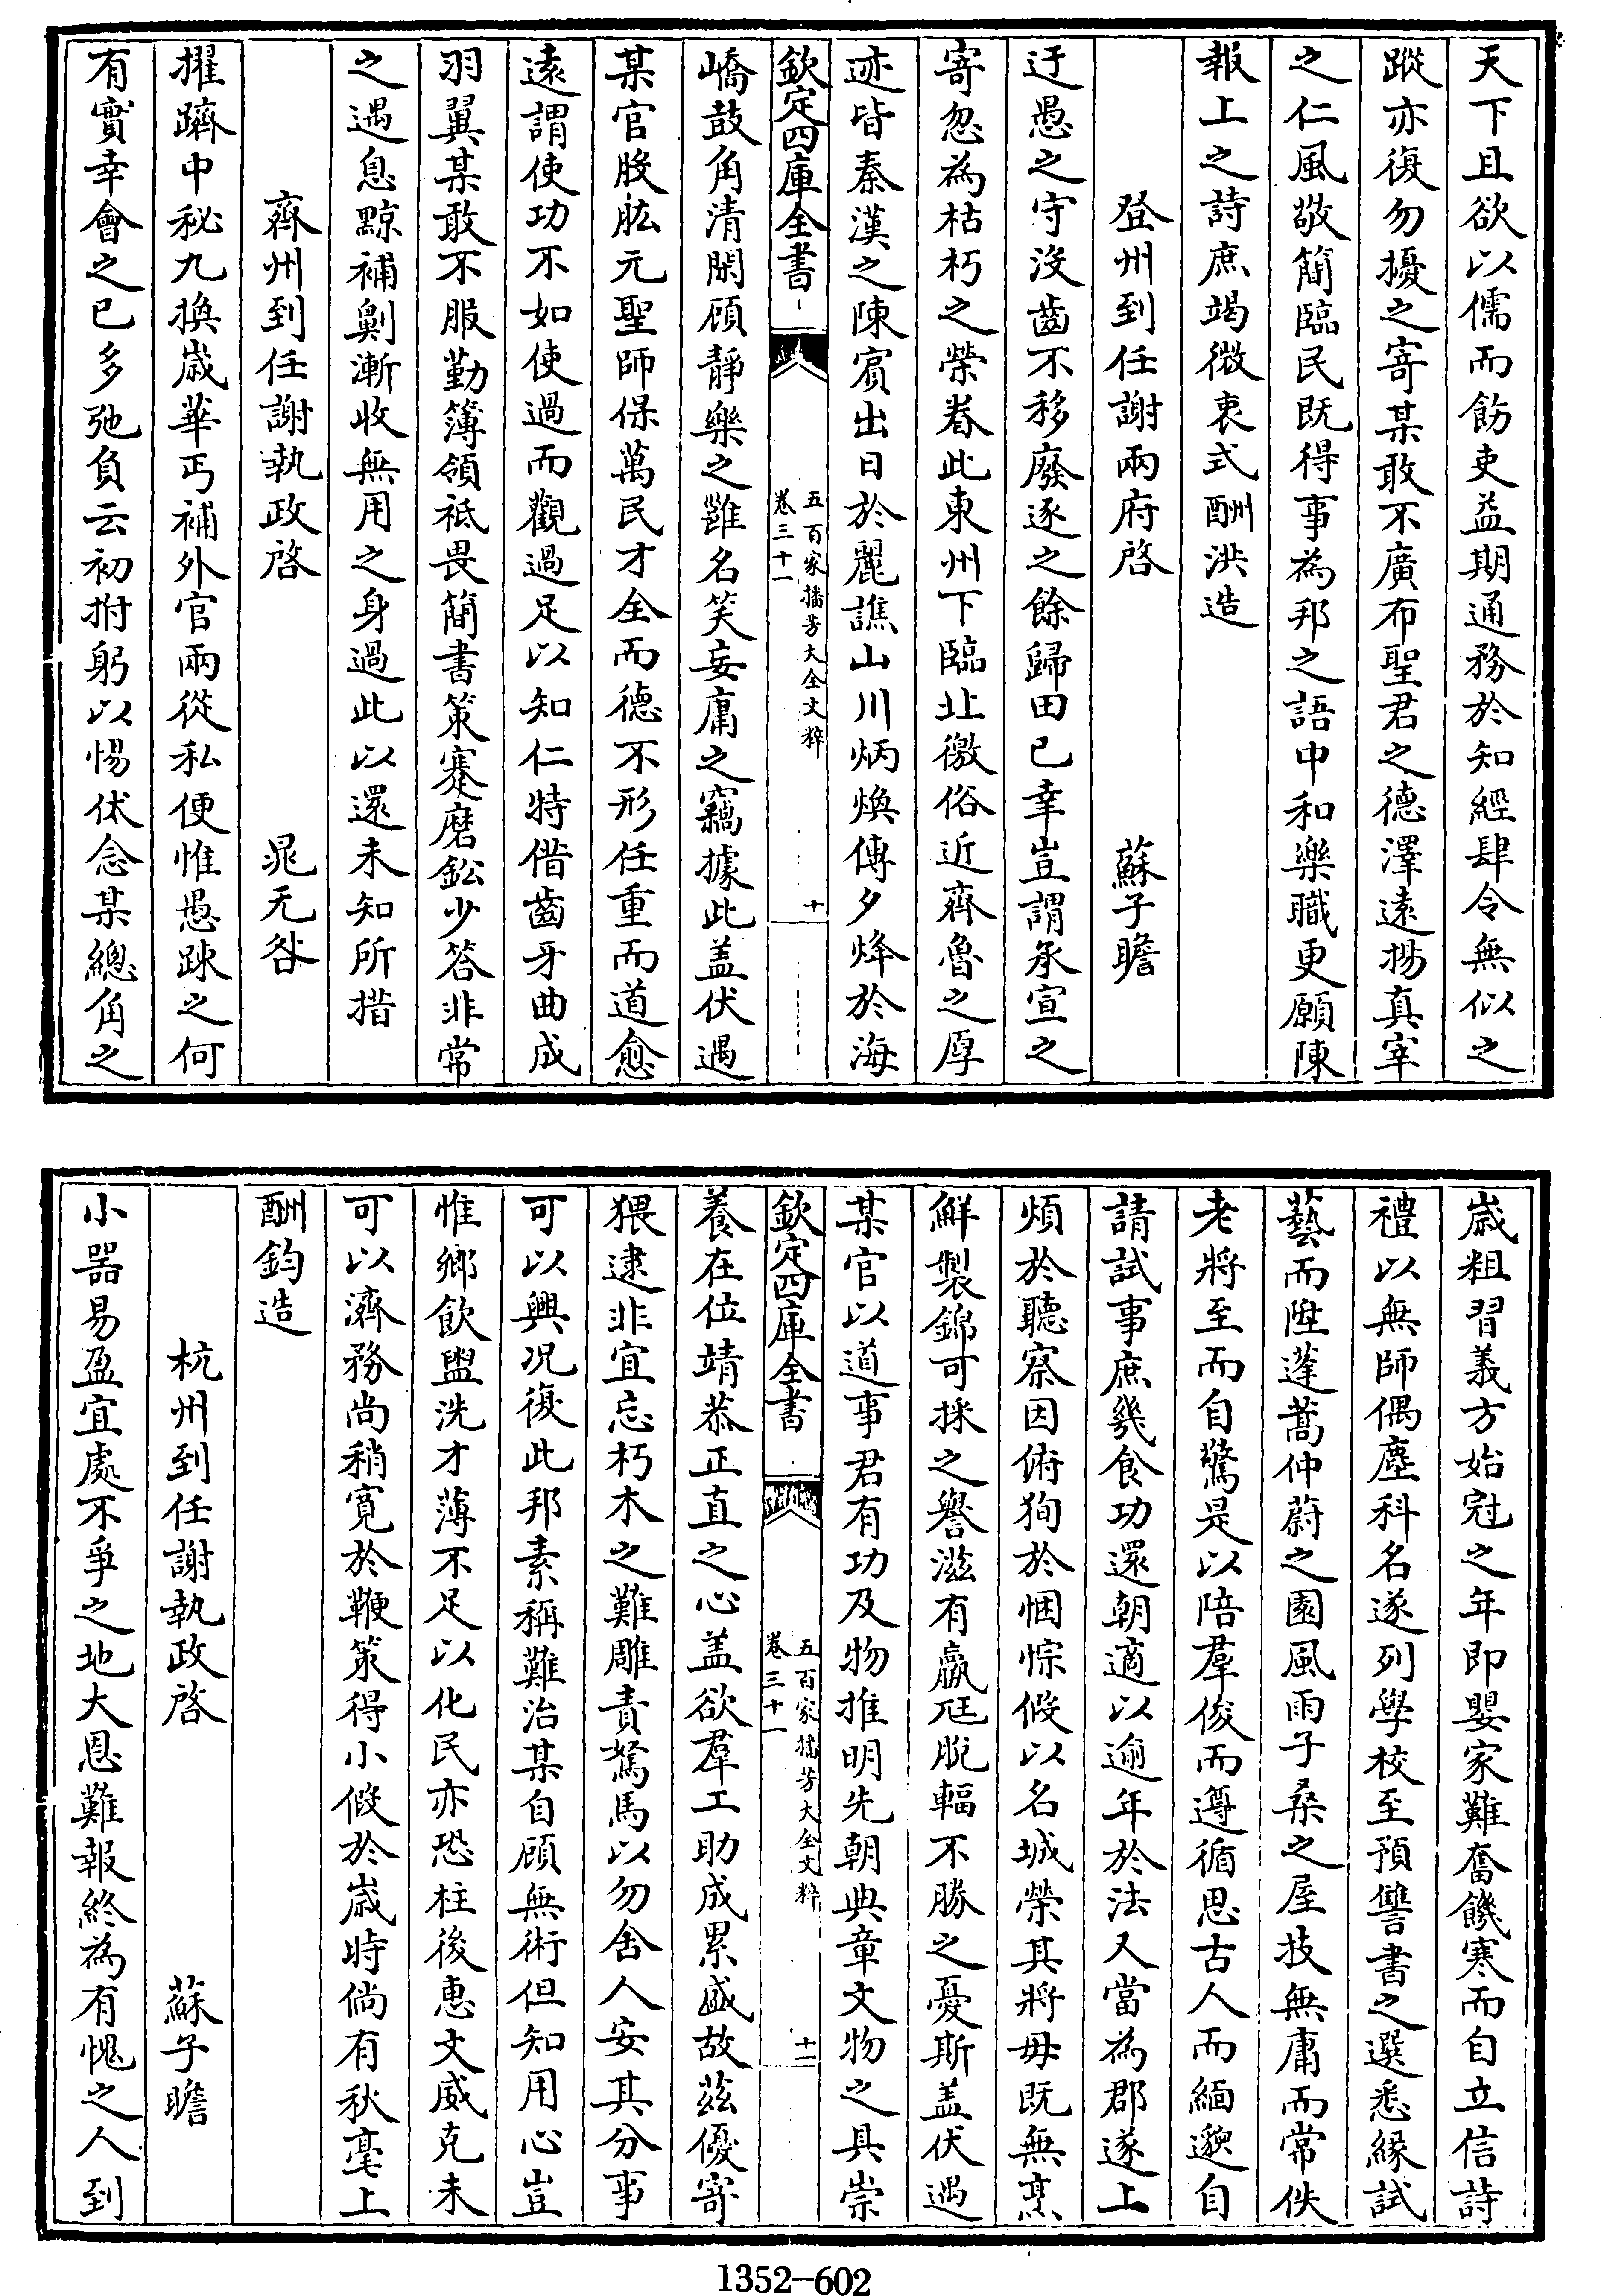 天下且欲以儒而飭吏益期通務於知經肆令無似之
蹤亦復勿擾之寄某敢不廣布聖君之德澤遠揚真宰
之仁風敬簡臨民既得事為邦之語中和樂職更願陳
報上之詩庶竭微衷式酬洪造
登州到任謝兩府啓 蘇子瞻
迂愚之守沒齒不移廢逐之餘歸田已幸豈謂承宣之
寄忽為枯朽之榮眷此東州下臨北徼俗近齊魯之厚
迹皆秦漢之陳賓出日於麗譙山川炳煥傳夕烽於海
欽定四庫全書
五百家播芳大全文粹
卷三十一
十
嶠鼓角清閑顧靜樂之難名笑妄庸之竊據此盖伏遇
某官股肱元聖師保萬民才全而德不形任重而道愈
遠謂使功不如使過而觀過足以知仁特借齒牙曲成
羽翼某敢不服勤簿領祗畏簡書策蹇磨鈆少答非常
之遇息黥補劓漸收無用之身過此以還未知所措
齊州到任謝執政啓 晁无咎
擢躋中秘九換歲華丐補外官兩從私便惟愚踈之何
有實幸會之已多弛負云初拊躬以惕伏念某總角之
歲粗習義方始冠之年即嬰家難奮饑寒而自立信詩
禮以無師偶塵科名遂列學校至預讐書之選悉緣試
藝而陞蓬蒿仲蔚之園風雨子桑之屋技無庸而常佚
老將至而自驚是以陪羣俊而遵循思古人而緬邈自
請試事庶幾食功還朝適以逾年於法又當為郡遂上
煩於聽察因俯狥於悃悰假以名城榮其將毋既無烹
鮮製錦可採之譽滋有羸尫脫輻不勝之憂斯盖伏遇
某官以道事君有功及物推明先朝典章文物之具崇
欽定四庫全書
五百家播芳大全文粹
卷三十一
十一
養在位靖恭正直之心盖欲羣工助成累盛故茲優寄
猥逮非宜忘朽木之難雕責駑馬以勿舍人安其分事
可以興况復此邦素稱難治某自顧無術但知用心豈
惟鄉飲盥洗才薄不足以化民亦恐柱後惠文威克未
可以濟務尚稍寬於鞭策得小假於歲時倘有秋毫上
酬鈞造
杭州到任謝執政啓 蘇子瞻
小器易盈宜處不爭之地大恩難報終為有愧之人到
1352-602